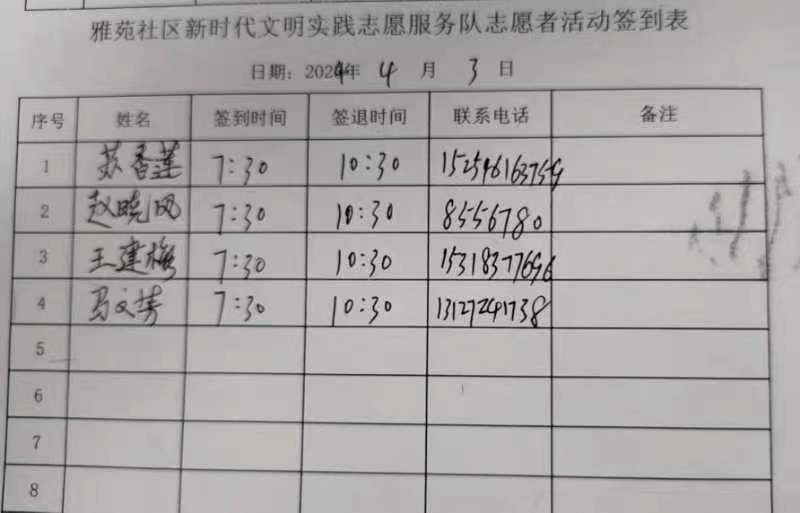 雅苑社区新时代文明实践志愿服务队志愿者活动签到表
日期：2024年 4 月 3 日
序号 姓名 签到时间 签退时间 联系电话 备注
1 苏香莲 7:30 10:30
2 赵晓风 7:30 10:30 8556780
3 王建梅 7:30 10:30 15318377696
4 马文芳 7:30 10:30 13127241738
5
6
7
8